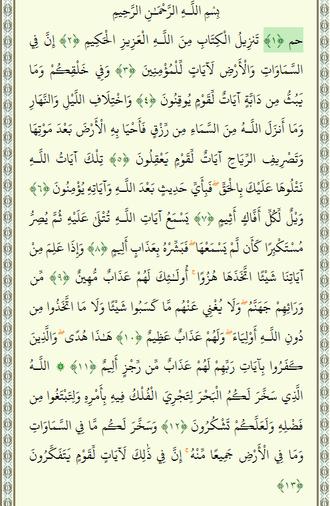 بِسْمِ اللَّـهِ الرَّحْمَـٰنِ الرَّحِيمِ
حم ﴿١﴾ تَنزِيلُ الْكِتَابِ مِنَ اللَّـهِ الْعَزِيزِ الْحَكِيمِ ﴿٢﴾ إِنَّ فِي
السَّمَاوَاتِ وَالْأَرْضِ لَآيَاتٍ لِّلْمُؤْمِنِينَ ﴿٣﴾ وَفِي خَلْقِكُمْ وَمَا
يَبُثُّ مِن دَابَّةٍ آيَاتٌ لِّقَوْمٍ يُوقِنُونَ ﴿٤﴾ وَاخْتِلَافِ اللَّيْلِ وَالنَّهَارِ
وَمَا أَنزَلَ اللَّـهُ مِنَ السَّمَاءِ مِن رِّزْقٍ فَأَحْيَا بِهِ الْأَرْضَ بَعْدَ مَوْتِهَا
وَتَصْرِيفِ الرِّيَاحِ آيَاتٌ لِّقَوْمٍ يَعْقِلُونَ ﴿٥﴾ تِلْكَ آيَاتُ اللَّـهِ
نَتْلُوهَا عَلَيْكَ بِالْحَقِّ ۖ فَبِأَيِّ حَدِيثٍ بَعْدَ اللَّـهِ وَآيَاتِهِ يُؤْمِنُونَ ﴿٦﴾
وَيْلٌ لِّكُلِّ أَفَّاكٍ أَثِيمٍ ﴿٧﴾ يَسْمَعُ آيَاتِ اللَّـهِ تُتْلَىٰ عَلَيْهِ ثُمَّ يُصِرُّ
مُسْتَكْبِرًا كَأَن لَّمْ يَسْمَعْهَا ۖ فَبَشِّرْهُ بِعَذَابٍ أَلِيمٍ ﴿٨﴾ وَإِذَا عَلِمَ مِنْ
آيَاتِنَا شَيْئًا اتَّخَذَهَا هُزُوًا ۚ أُولَـٰئِكَ لَهُمْ عَذَابٌ مُّهِينٌ ﴿٩﴾ مِّن
وَرَائِهِمْ جَهَنَّمُ ۖ وَلَا يُغْنِي عَنْهُم مَّا كَسَبُوا شَيْئًا وَلَا مَا اتَّخَذُوا مِن
دُونِ اللَّـهِ أَوْلِيَاءَ ۖ وَلَهُمْ عَذَابٌ عَظِيمٌ ﴿١٠﴾ هَـٰذَا هُدًى ۖ وَالَّذِينَ
كَفَرُوا بِآيَاتِ رَبِّهِمْ لَهُمْ عَذَابٌ مِّن رِّجْزٍ أَلِيمٌ ﴿١١﴾ ۞ اللَّـهُ
الَّذِي سَخَّرَ لَكُمُ الْبَحْرَ لِتَجْرِيَ الْفُلْكُ فِيهِ بِأَمْرِهِ وَلِتَبْتَغُوا مِن
فَضْلِهِ وَلَعَلَّكُمْ تَشْكُرُونَ ﴿١٢﴾ وَسَخَّرَ لَكُم مَّا فِي السَّمَاوَاتِ
وَمَا فِي الْأَرْضِ جَمِيعًا مِّنْهُ ۚ إِنَّ فِي ذَٰلِكَ لَآيَاتٍ لِّقَوْمٍ يَتَفَكَّرُونَ
﴿١٣﴾